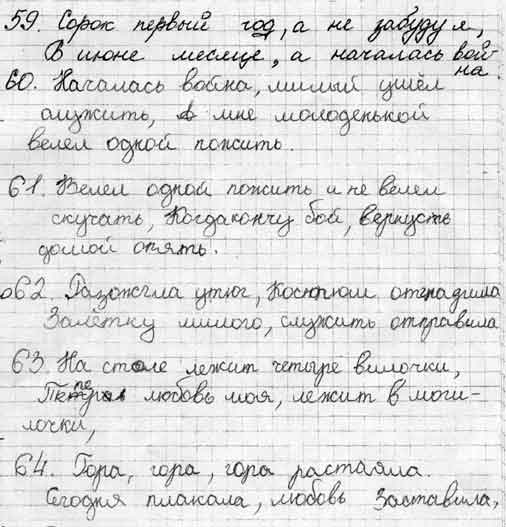 59. Сорок первый год, а не забуду я,
В июне месяце, а началась вой-
на.
60. Началась война, милый ушёл
служить, а мне молоденькой
велел одной пожить.
61. Велел одной пожить и не велел
скучать, Когда кончу бой, вернусь
домой опять.
62. Разожгла утюг, Костюм отгладила
Залётку милого, служить отправила
63. На столе лежит четыре вилочки,
любовь моя, лежит в моги-
лочки,
64. Гора, гора, гора растаяла.
Сегодня плакала, любовь заставила,